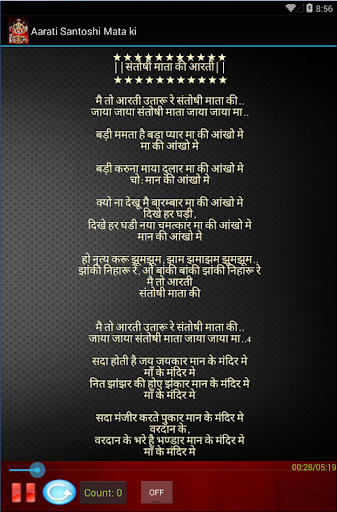 8:56
Aarati Santoshi Mata ki
★★★★★★★★★★★
||संतोषी माता की आरती||
★★★★★★★★★★★
मै तो आरती उतारू रे संतोषी माता की..
जाया जाया संतोषी माता जाया जाया मा..
बड़ी ममता है बड़ा प्यार मा की आंखो मे
मा की आंखो मे
बड़ी करुना माया दुलार मा की आंखो मे
चो:मान की आंखो मे
क्यो ना देखू मै बारम्बार मा की आंखो मे
दिखे हर घड़ी,
दिखे हर घडी नया चमत्कार मा की आंखो मे
मान की आंखो मे
हो नृत्य करू झूमझूम, झाम झमाझम झूमझूम..
झांकी निहारू रे, ओ बांकी बांकी झांकी निहारू रे
मै तो आरती
संतोषी माता की
मै तो आरती उतारू रे संतोषी माता की..
जाया जाया संतोषी माता जाया जाया मा..4
सदा होती है जय जयकार मान के मंदिर मे
माँ के मंदिर मे
नित झांझर की होए झंकार मान के मंदिर मे
माँ के मंदिर मे
सदा मंजीर करते पुकार मान के मंदिर मे
वरदान के,
वरदान के भरे है भण्डार मान के मंदिर मे
माँ के मंदिर मे
00:28/05:19
Count: 0
OFF